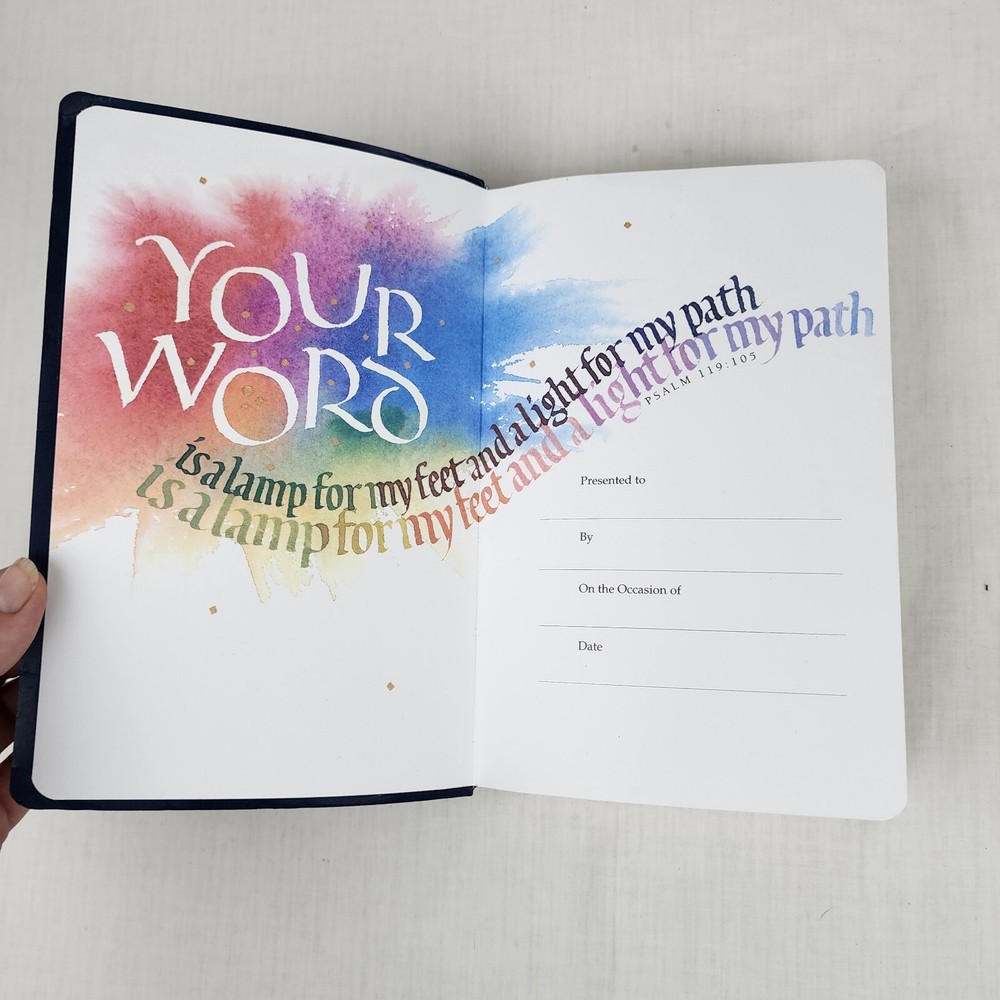 YOUR
WORD
is a lamp for my feet and a light for my path
is a lamp for my feet and a light for my path
PSALM 119:105
Presented to
By
On the Occasion of
Date